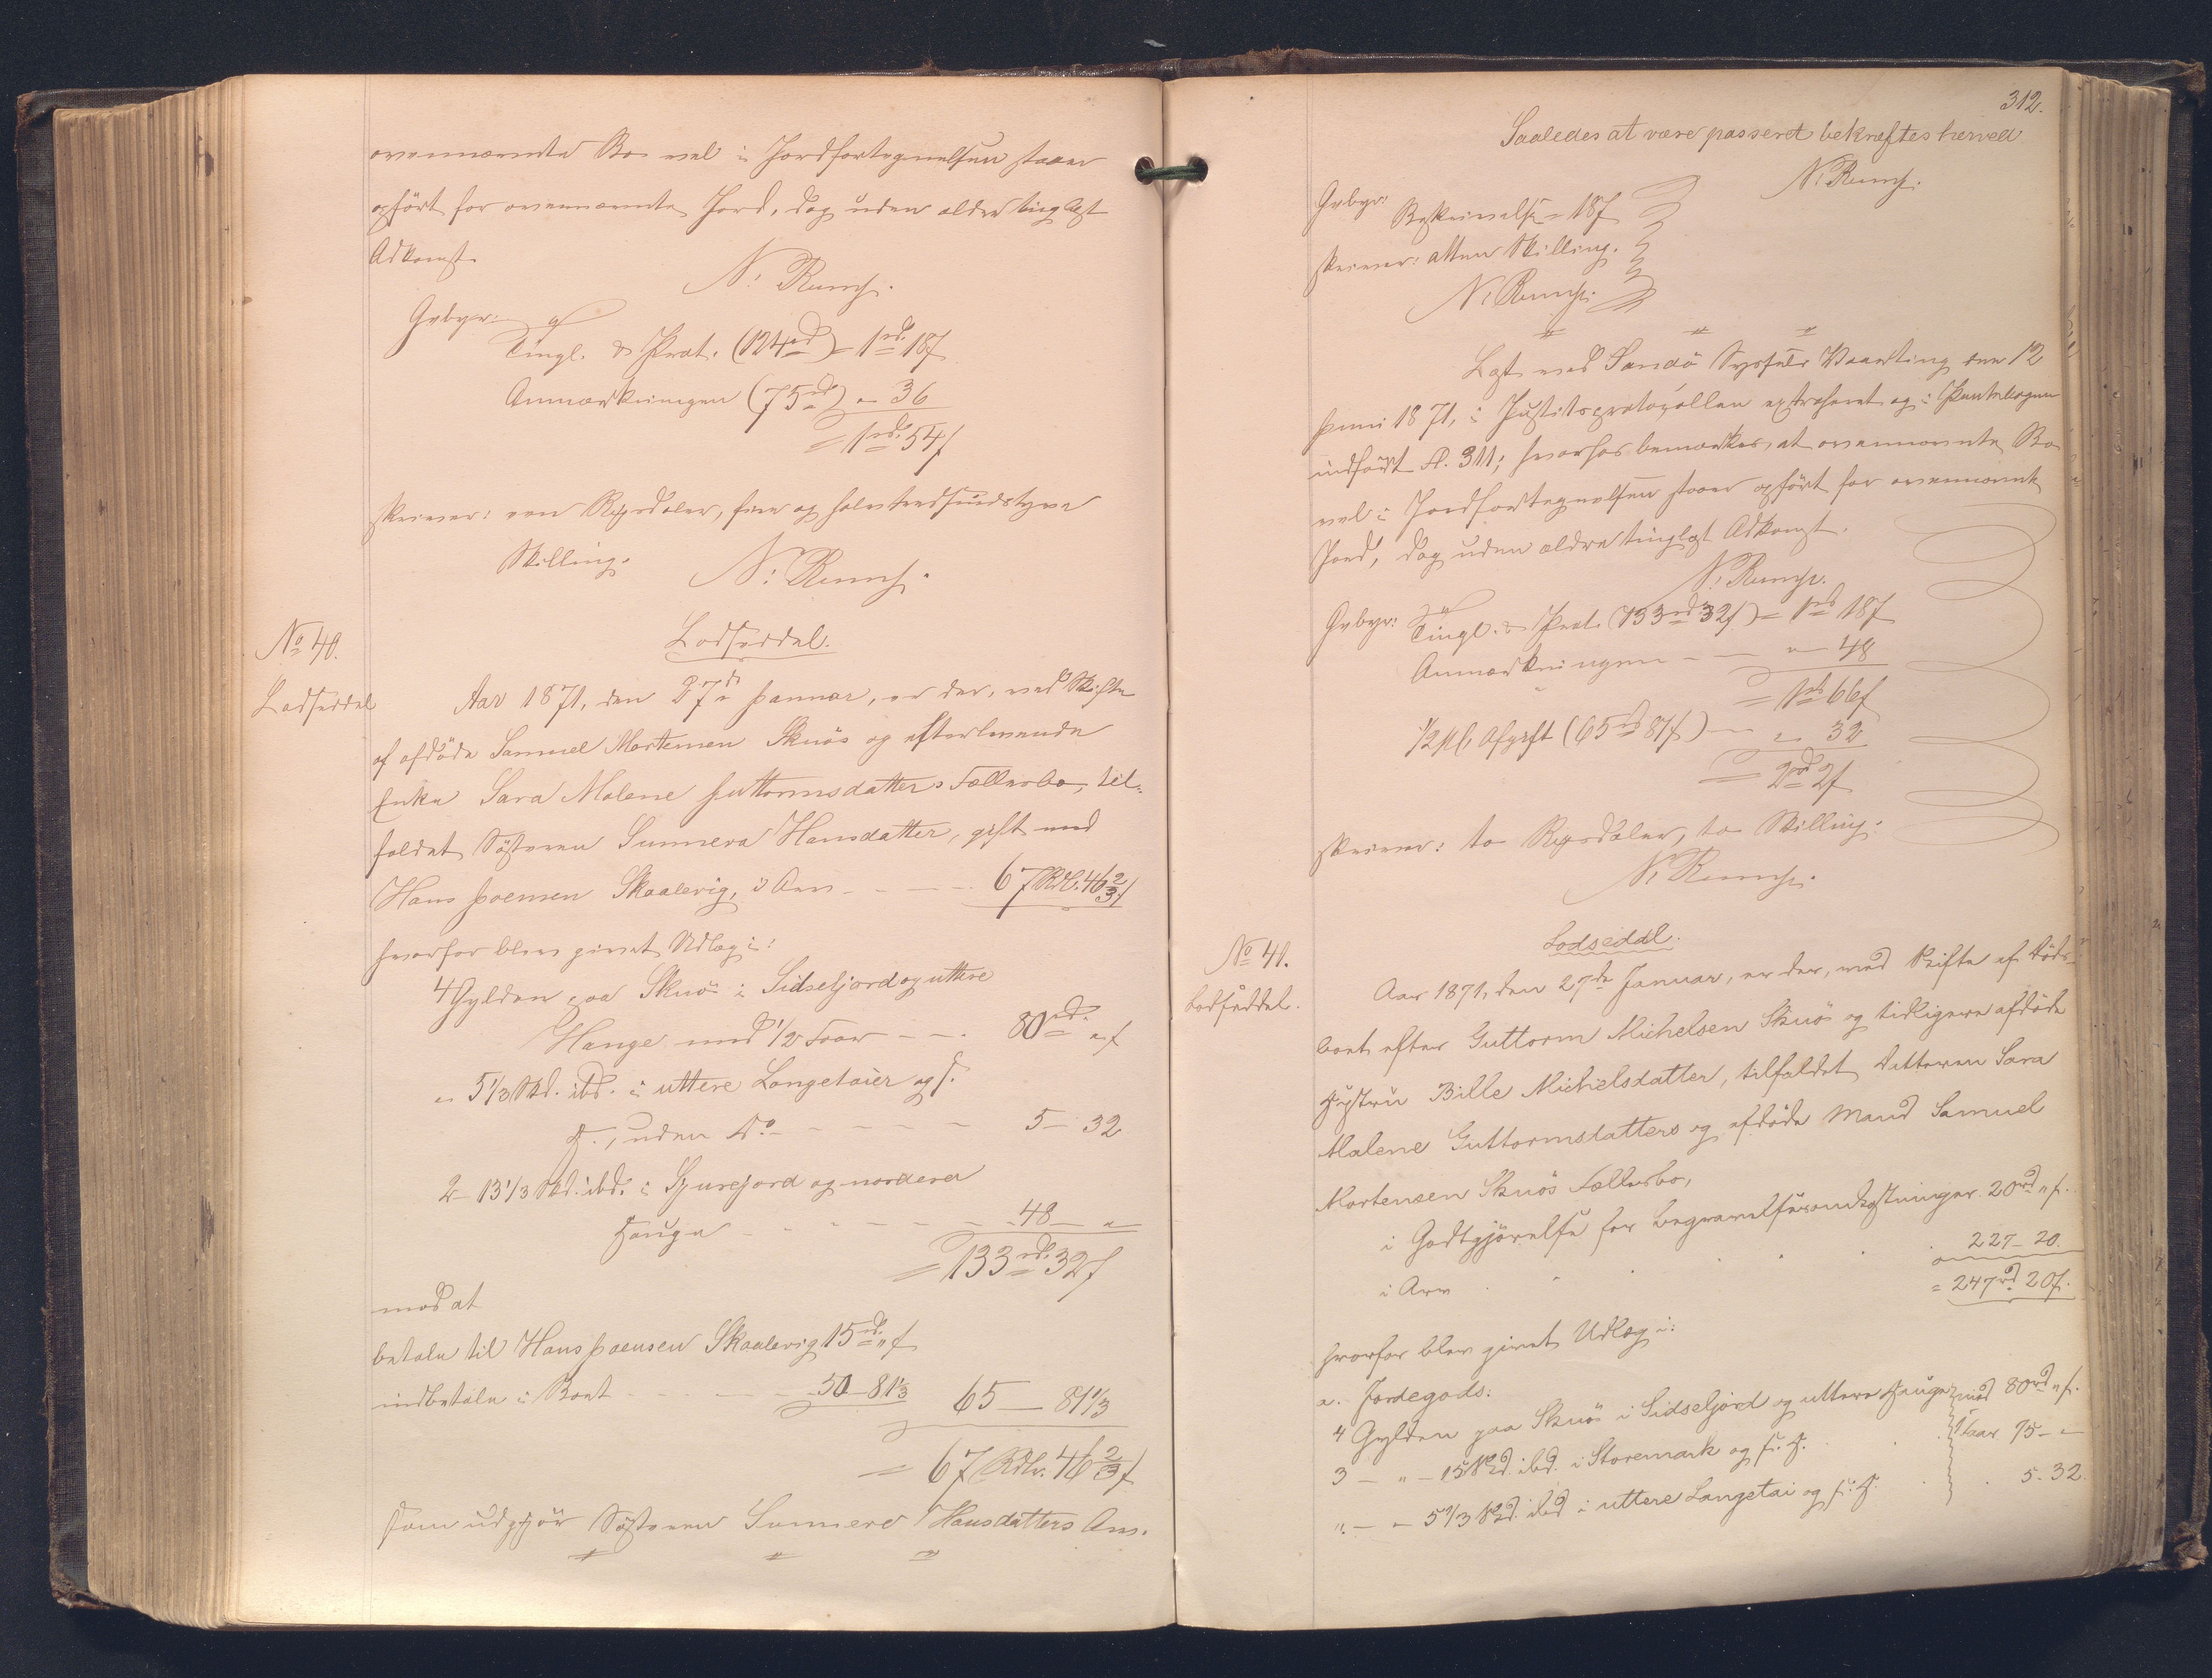 ovennævnte Bo vel i Jordfortegnelsen staaer
opført for ovennævnte Jord, dog uden ældre tinglæst
Adkomst.
N: Rump.
Gebyr:
Tingl. & Prot. (124rd) = 1rd 18ſ
Anmærkningen (75rd) „ 36
= 1rd 54ſ
skriver: een Rigsdaler, fire og halvtredsindstyve
Skilling.
N: Rump.
No 40.
Lodseddel
Lodseddel.
Aar 1871, den 27de Januar, er der, ved Skifte
af afdøde Samuel Mortensen Skuøs og efterlevende
Enke Sara Malene Guttormsdatters Fællesbo, til-
faldet Søsteren Sunneva Hansdatter, gift med
Hans Joensen Skaalevig, i Arv - - - - 67 Rdl. 46 2/3 ſ
hvorfor blev givet Udlæg i:
4 Gylden paa Skuø i Sidseljord og uttere
Hauge med 1/2 Foar - - . 80rd „ ſ
„ 5 1/3 Skd. ibd. i uttere Langetaier og f.
H., uden Do - - - - - 5 - 32
2 - 13 1/3 Skd. ibd. i Gjurejord og nordera
Hauge - - - - - - 48 - „
= 133rd 32ſ
mod at
betale til Hans Joensen Skaalevig 15rd „ ſ
indbetale i Boet - - - - 50 - 81 1/3 65 — 81 1/3
= 67 Rdlr. 46 2/3 ſ
som udgjør Søsteren Sunneva Hansdatters Arv.
312.
Saaledes at være passeret bekræftes herved
N: Rump.
Gebyr:
Beskrivelse = 18ſ
skriver: atten Skilling.
N: Rump.
Læst ved Sandø Syssels Vaarting den 12
Juni 1871, i Justitsprotocollen extraheret og i Pantebogen
indført Fl. 311; hvorhos bemærkes, at ovennævnte Bo
vel i Jordfortegnelsen staaer opført for ovennævnte
Jord, dog uden ældre tinglæst Adkomst.
N: Rump.
Gebyr: Tingl. & Prot. (133rd 32ſ) = 1rd 18ſ
Anmærkningen - — „ 48
= 1rd 66ſ
1/2 pCt. Afgift (65rd 81ſ) — „ 32
= 2rd 2ſ
skriver: to Rigsdaler, to Skilling.
N: Rump.
No 41.
Lodseddel.
Lodseddel.
Aar 1871, den 27de Januar, er der, ved Skifte af Døds-
boet efter Guttorm Michelsen Skuøs og tidligere afdøde
Hystru Bille Michelsdatter, tilfaldet Datteren Sara
Malene Guttormsdatters og afdøde Mand Samuel
Mortensen Skuøs Fællesbo,
i Godtgjørelse for Begravelsesomkostninger. 20rd „ ſ.
i Arv . . . . . . 227 - 20.
= 247rd 20ſ.
hvorfor blev givet Udlæg i:
a. Jordegods.
4 Gylden paa Skuø i Sidseljord og uttere Hauge med 80rd „ ſ.
3 - „ - 15 Skd. ibd. i Storemark og f. H. . . Faar 75 - „
„ - - 5 1/3 Skd. ibd i uttere Langetai og f. H. . . 5. 32.